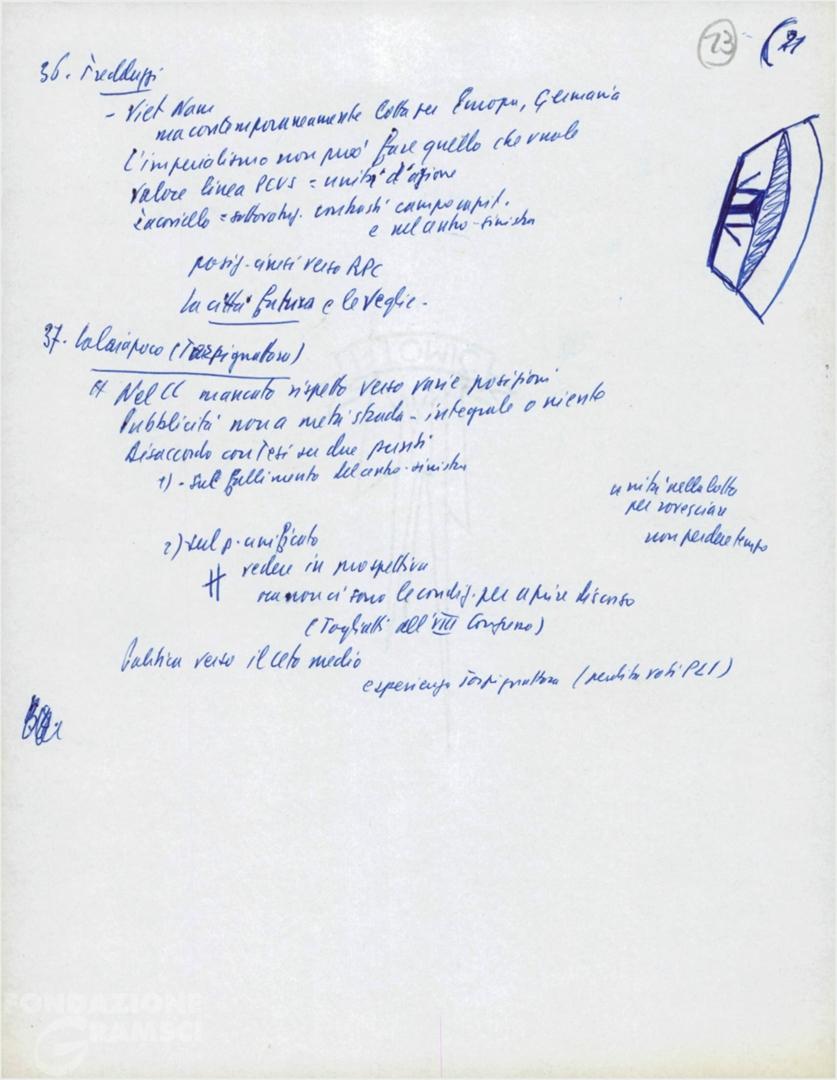 13 (21
36. Fredduzzi
- Viet Nam
ma contemporaneamente lotta per Europa, Germania
L'imperialismo non può fare quello che vuole
Valore linea PCUS = unità d'azione
= sottovalutaz. contrasti campo capit.
e nel centro-sinistra
posiz. cinesi verso RPC
La città futura e le veglie -
37. Calaiapoco (Torpignattara)
Nel CC mancato rispetto verso varie posizioni
Pubblicità non a metà strada - integrale o niente
Disaccordo con Tesi su due punti
1) - sul fallimento del centro-sinistra
unità nella lotta
per rovesciare
non perdere tempo
2) sul p. unificato
# vedere in prospettiva
ma non ci sono le condiz. per aprire discorso
(Togliatti all'VIII Congresso)
Politica verso il ceto medio
esperienza Torpignattara (perdita voti PLI)
VIIV
FONDAZIONE
GRAMSCI